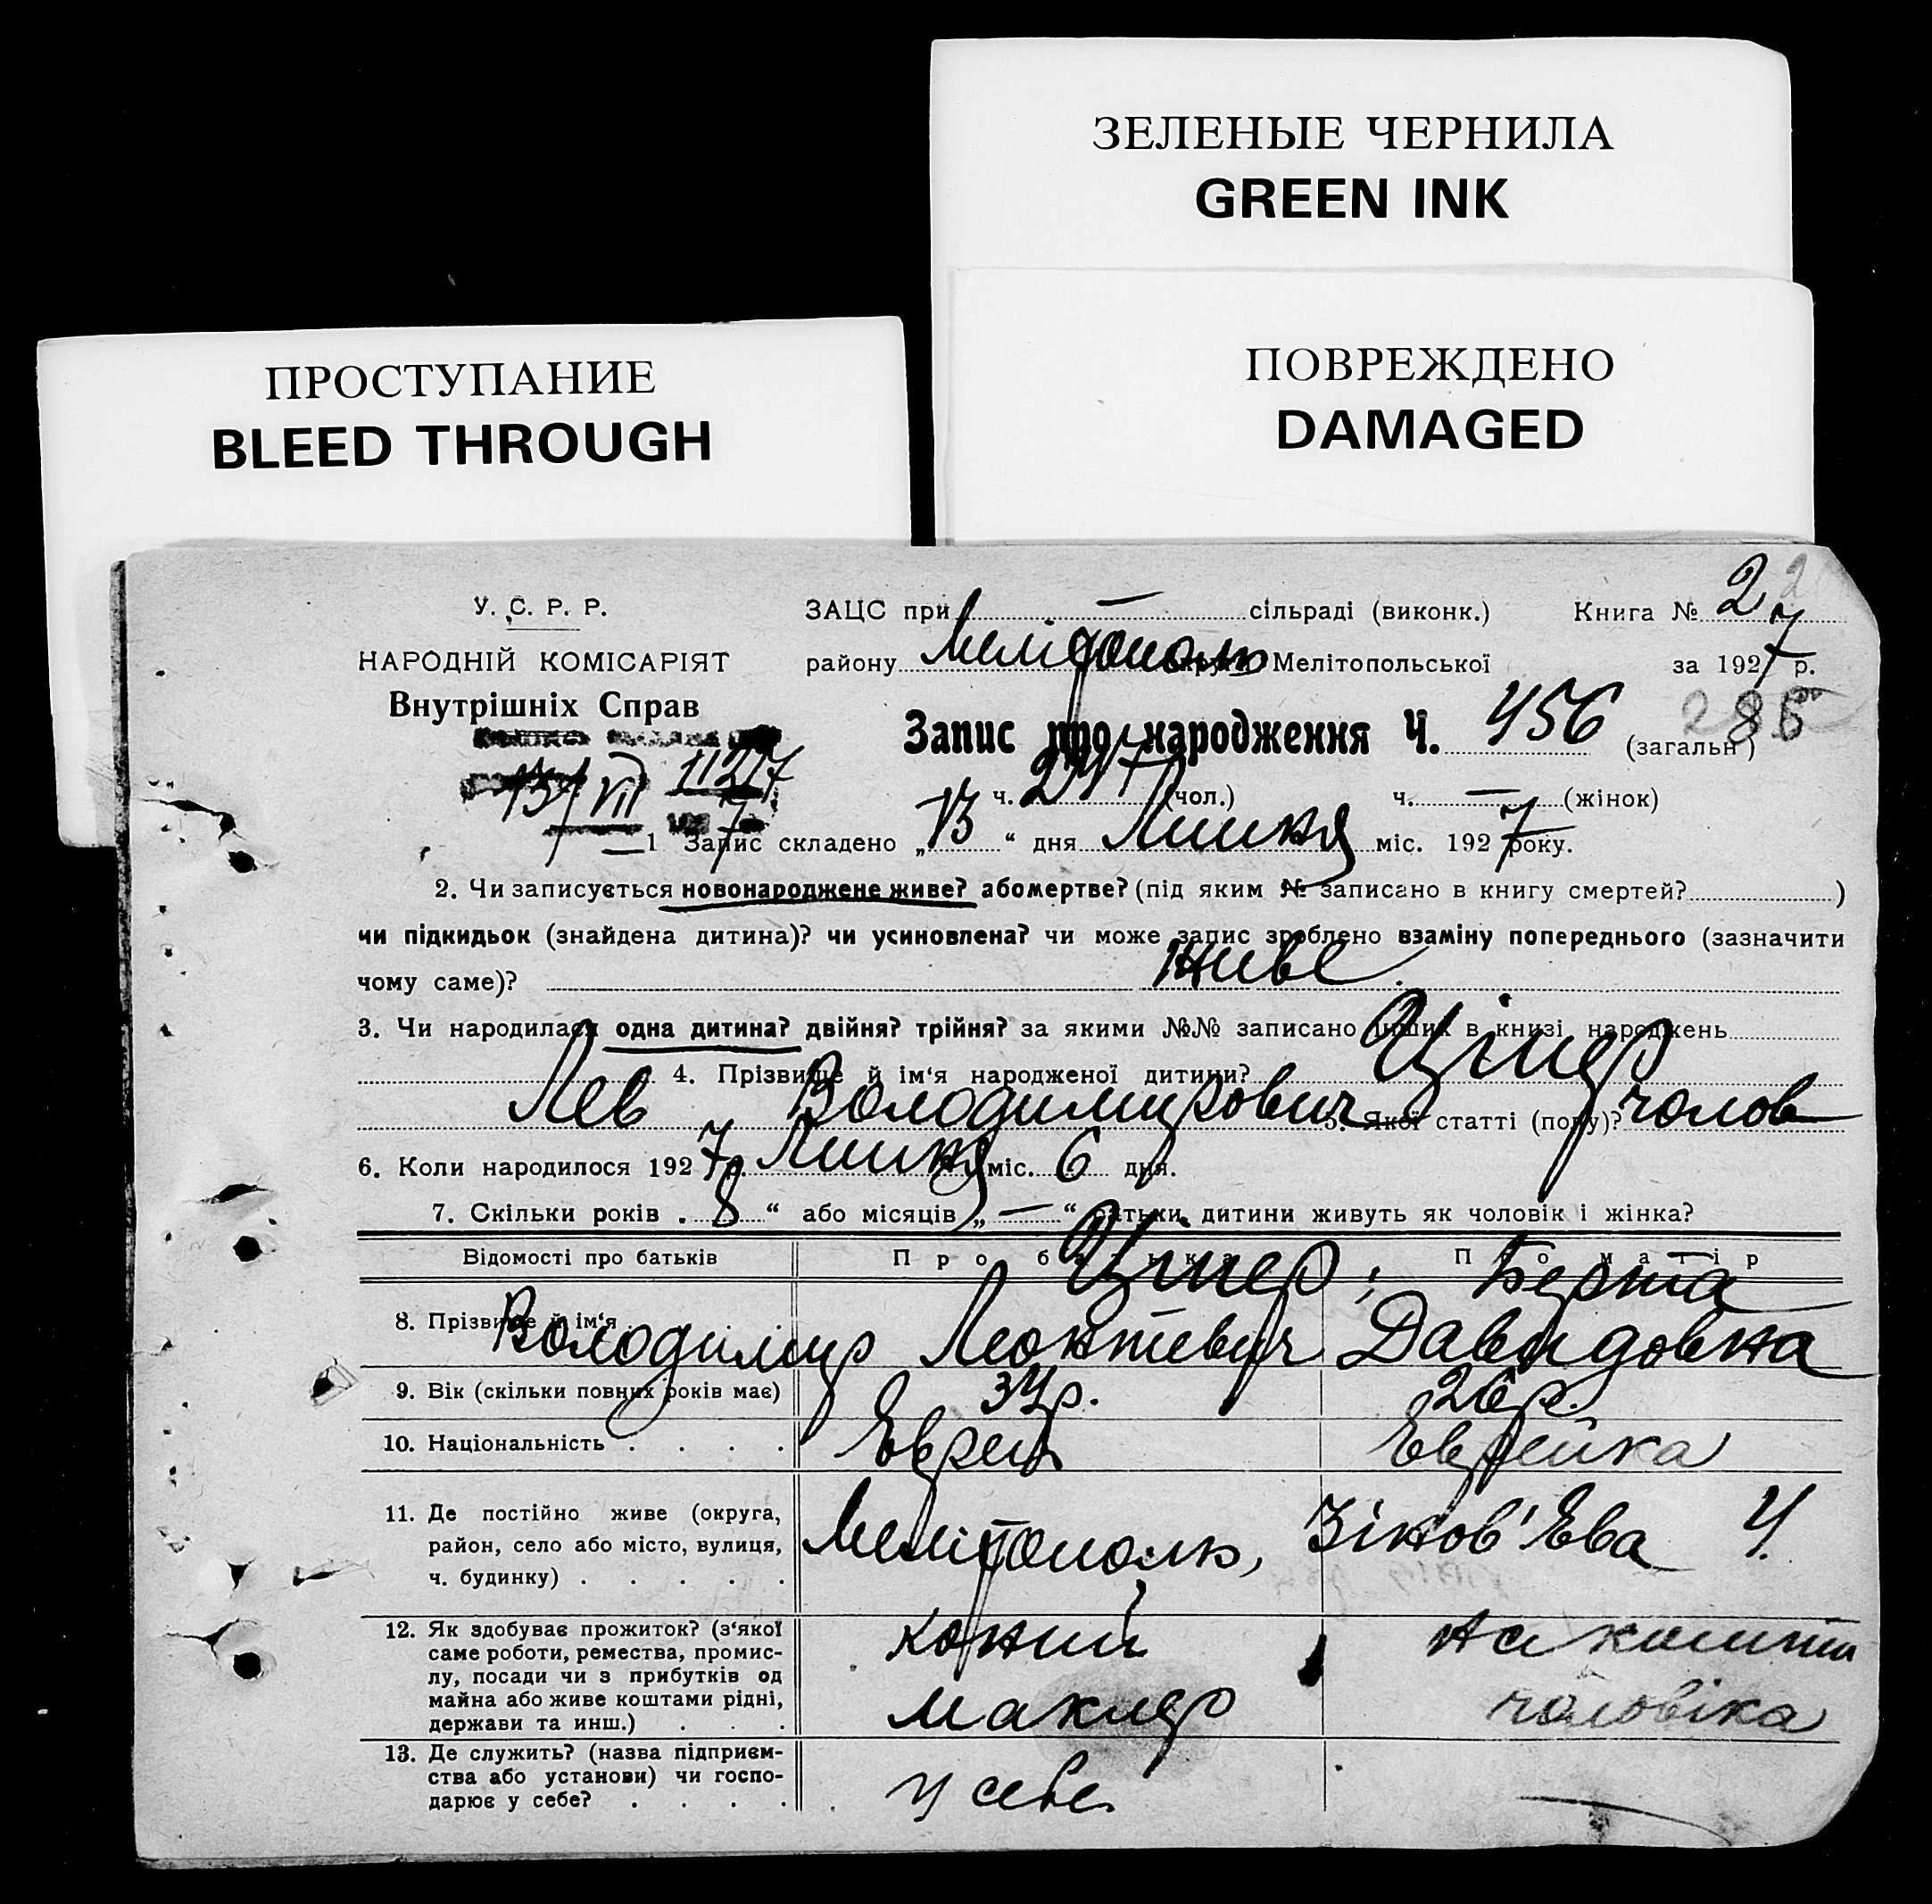 ЗЕЛЕНЫЕ ЧЕРНИЛА
GREEN INK
ПРОСТУПАНИЕ
BLEED THROUGH
ПОВРЕЖДЕНО
DAMAGED
У. С. Р. Р.
НАРОДНІЙ КОМІСАРІЯТ
Внутрішніх Справ
13/VII 11217
7
ЗАЦС при — сільраді (виконк.) Книга № 2
району Мелітополь Мелітопольської за 1927 р.
Запис про народження Ч. 456 (загальн) 285
ч. 247 (чол.) ч. — (жінок)
1 Запис складено „13“ дня Липня міс. 1927 року.
2. Чи записується новонароджене живе? або мертве? (під яким № записано в книгу смертей? )
чи підкидьок (знайдена дитина)? чи усиновлена? чи може запис зроблено взаміну попереднього (зазначити
чому саме)? живе.
3. Чи народилася одна дитина? двійня? трійня? за якими №№ записано інших в книзі народжень
4. Прізвище й ім‘я народженої дитини? Ціпер
Лев Володимирович 5. Якої статті (полу)? чолов
6. Коли народилося 1927 р. Липня міс. 6 дня.
7. Скільки років „8“ або місяців „—“ батьки дитини живуть як чоловік і жінка?
Відомості про батьків Про батька Про матір
8. Прізвище й ім‘я Ціпер; Берта
Володимир Леонтевич Давидовна
9. Вік (скільки повних років має) 34 р. 26 р.
10. Національність Еврей Еврейка
11. Де постійно живе (округа,
район, село або місто, вулиця,
ч. будинку) Мелітополь, Зіновʼєва 4.
12. Як здобуває прожиток? (з‘якої
саме роботи, ремества, промис-
лу, посади чи з прибутків од
майна або живе коштами рідні,
держави та инш.)
маклер
на кошти
чоловіка
13. Де служить? (назва підприєм-
ства або установи) чи госпо-
дарює у себе? у себе —